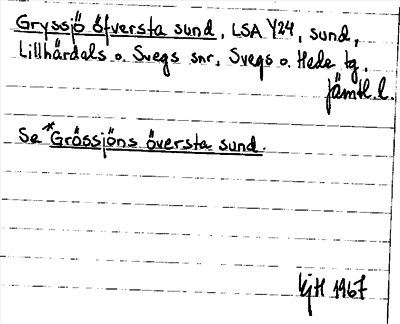 Gryssjö öfversta sund, LSA Y24, sund,
Lillhärdals o. Svegs snr, Svegs o. Hede tg,
Jämtl. l.
Se *Grössjöns översta sund.
KjH 1967